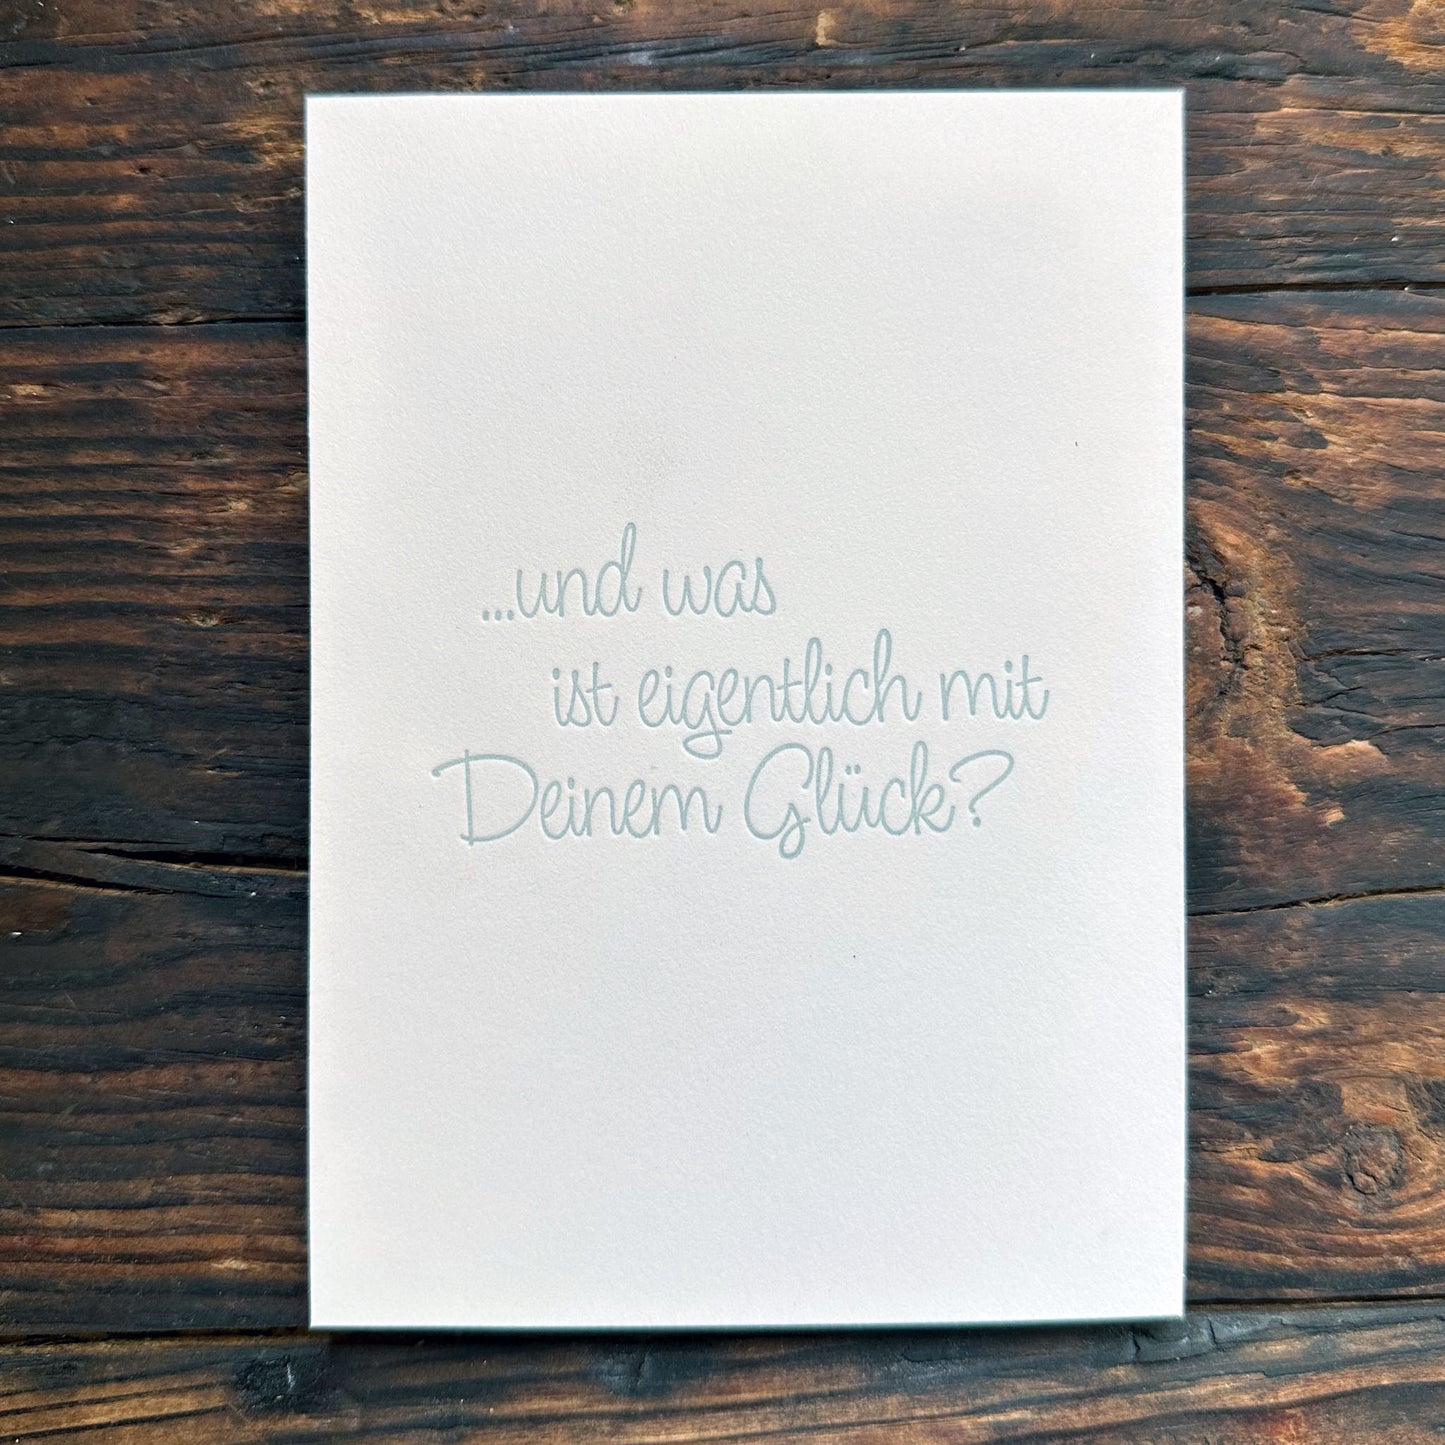 ...und was
ist eigentlich mit
Deinem Glück?